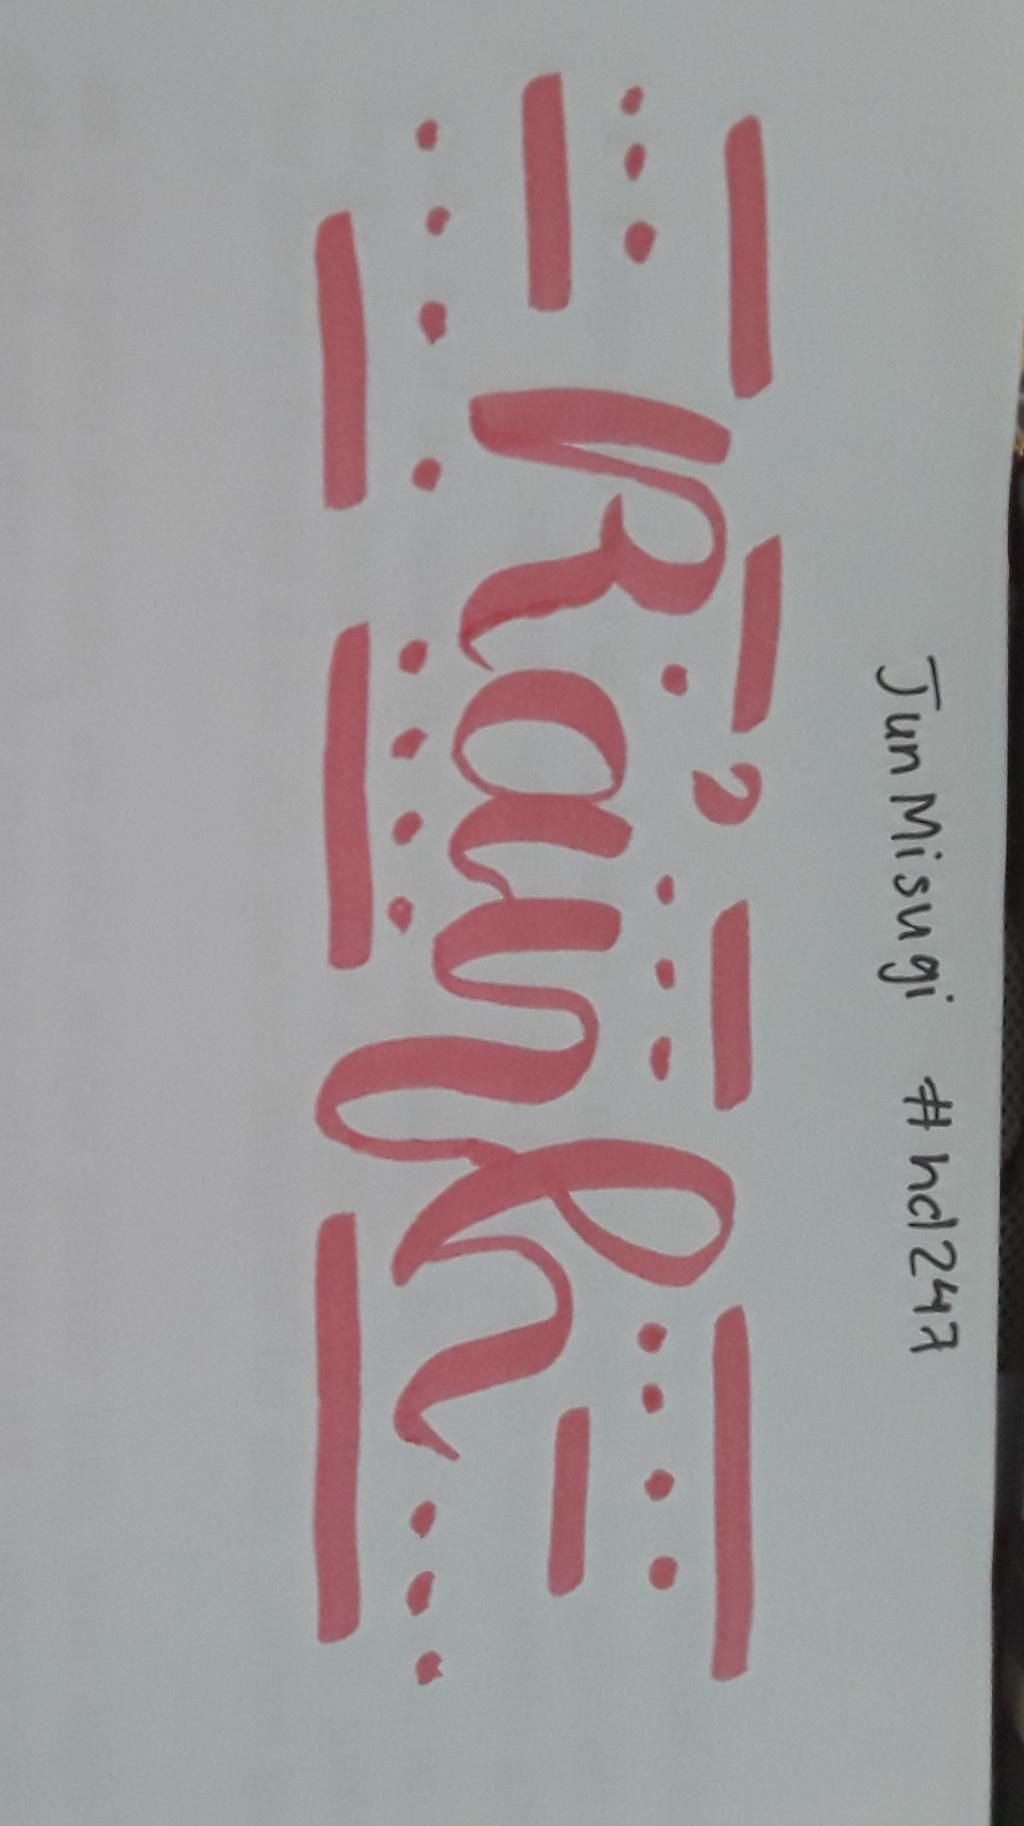 Jun Misugi #hd247
Rảnh